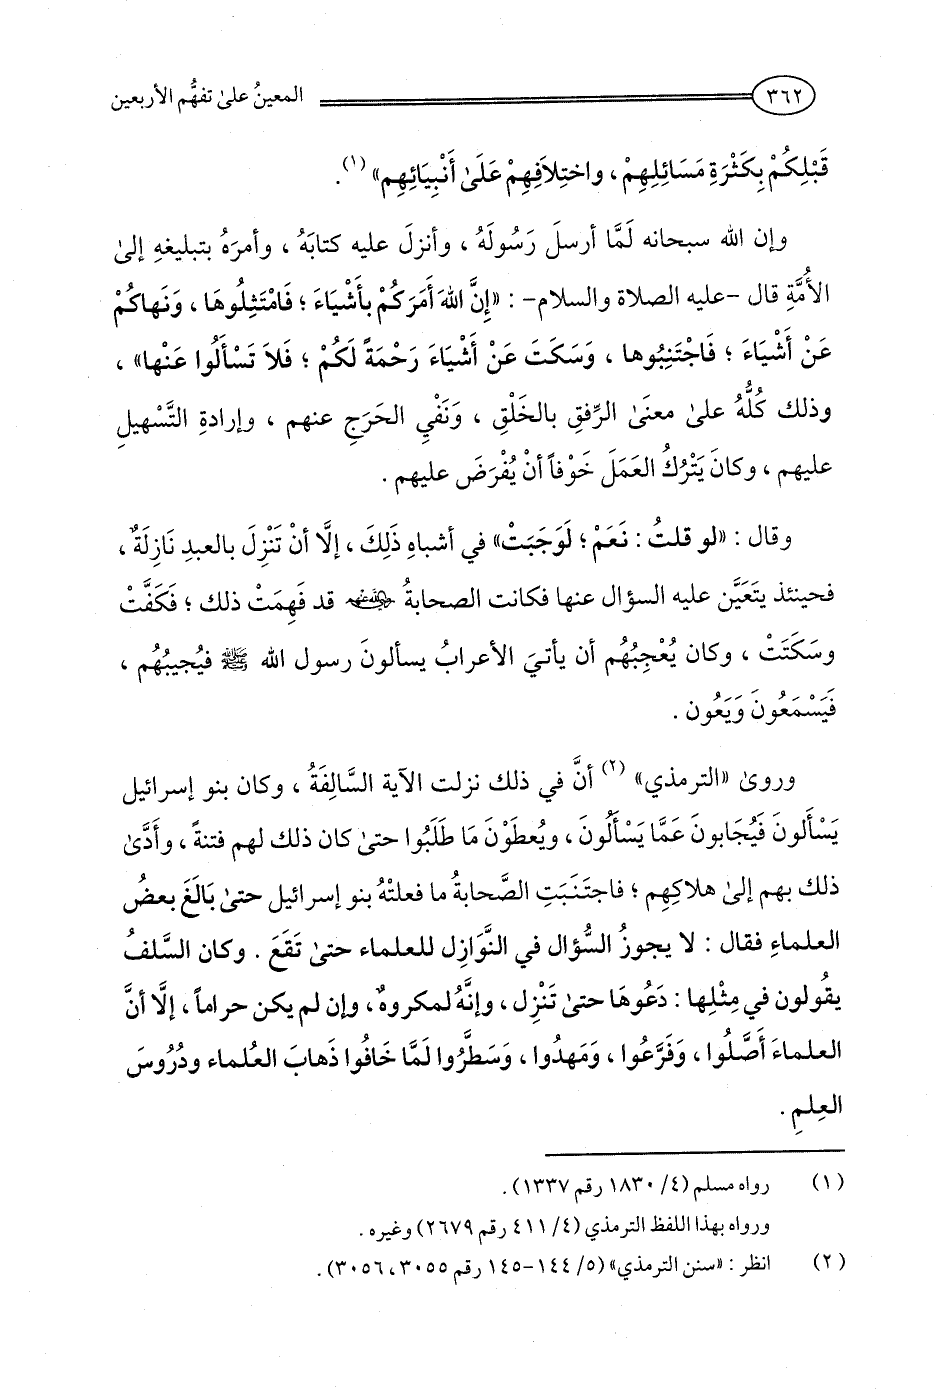 ٣٦٢ المعينُ علىٰ تفهُّم الأربعين
قَبْلِكُمْ بِكَثْرَةِ مَسَائِلِهِمْ ، واخْتِلاَفِهِمْ عَلَىٰ أَنْبِيَائِهِم» (١).
وإن الله سبحانه لَمَّا أرسلَ رَسُولَهُ ، وأنزلَ عليه كتابَهُ ، وأمرَهُ بتبليغهِ إلىٰ
الأُمَّةِ قال -عليه الصلاة والسلام- : «إِنَّ اللهَ أَمَرَكُمْ بِأَشْيَاءَ ؛ فَامْتَثِلُوهَا ، وَنَهاكُمْ
عَنْ أَشْيَاءَ ؛ فَاجْتَنِبُوها ، وَسَكَتَ عَنْ أَشْيَاءَ رَحْمَةً لَكُمْ ؛ فَلاَ تَسْأَلُوا عَنْها» ،
وذلك كُلُّهُ علىٰ معنَىٰ الرِّفقِ بالخَلْقِ ، وَنَفْيِ الحَرَجِ عنهم ، وإرادةِ التَّسْهيلِ
عليهم ، وكانَ يَتْرُكُ العَمَلَ خَوْفاً أنْ يُفْرَضَ عليهم .
وقال : «لو قلتُ : نَعَمْ ؛ لَوَجَبَتْ» في أشباهِ ذَلِكَ ، إلَّا أنْ تَنْزِلَ بالعبدِ نَازِلَةٌ ،
فحينئذ يتَعَيَّن عليه السؤال عنها فكانت الصحابةُ رضي الله عنهم قد فَهِمَتْ ذلك ؛ فَكَفَّتْ
وسَكَتَتْ ، وكان يُعْجِبُهُم أن يأتيَ الأعرابُ يسألونَ رسول الله ﷺ فيُجيبُهُم ،
فَيَسْمَعُونَ وَيَعُون .
وروىٰ «الترمذي» (٢) أنَّ في ذلك نزلت الآية السَّالِفَةُ ، وكان بنو إسرائيل
يَسْأَلونَ فَيُجَابونَ عَمَّا يَسْأَلُونَ ، ويُعطَوْنَ مَا طَلَبُوا حتىٰ كان ذلك لهم فتنةً ، وأدَّىٰ
ذلك بهم إلىٰ هلاكِهِم ؛ فاجتَنَبَتِ الصَّحابةُ ما فعلتْهُ بنو إسرائيل حتىٰ بَالَغَ بعضُ
العلماءِ فقال : لا يجوزُ السُّؤال في النَّوَازِل للعلماء حتىٰ تَقَعَ . وكان السَّلفُ
يقُولون في مِثْلِها : دَعُوهَا حتىٰ تَنْزِل ، وإنَّهُ لمكروهٌ، وإن لم يكن حراماً ، إلَّا أنَّ
العلماءَ أَصَّلُوا ، وَفَرَّعُوا ، وَمَهدُوا ، وَسَطَّرُوا لَمَّا خَافُوا ذَهابَ العُلماء ودُرُوسَ
العِلمِ .
(١) رواه مسلم (٤/ ١٨٣٠ رقم ١٣٣٧) .
ورواه بهذا اللفظ الترمذي (٤/ ٤١١ رقم ٢٦٧٩) وغيره .
(٢) انظر : «سنن الترمذي» (٥/ ١٤٤-١٤٥ رقم ٣٠٥٥، ٣٠٥٦) .